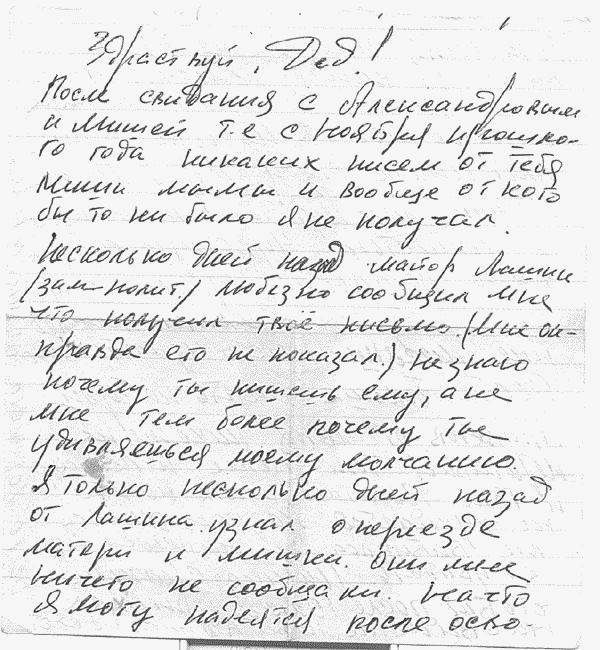 Здраствуй, Дед!
После свидания с Александровым
и Мишей т.е с ноября прошло-
го года никаких писем от тебя
Миши мымы и вообще от кого
бы то ни было я не получал.
Несколько дней назад майор Лашин
(зам-полит.) любезно сообщил мне
что получил твоё письмо. (Мне он-
правда его не показал.) Не знаю
почему ты пишешь ему, а не
мне тем более почему ты
удивляешься моему молчанию.
Я только несколько дней назад
от Лашина узнал о переезде
матери и Мишки. Они мне
ничего не сообщали. На что
я могу надеятся после осво-